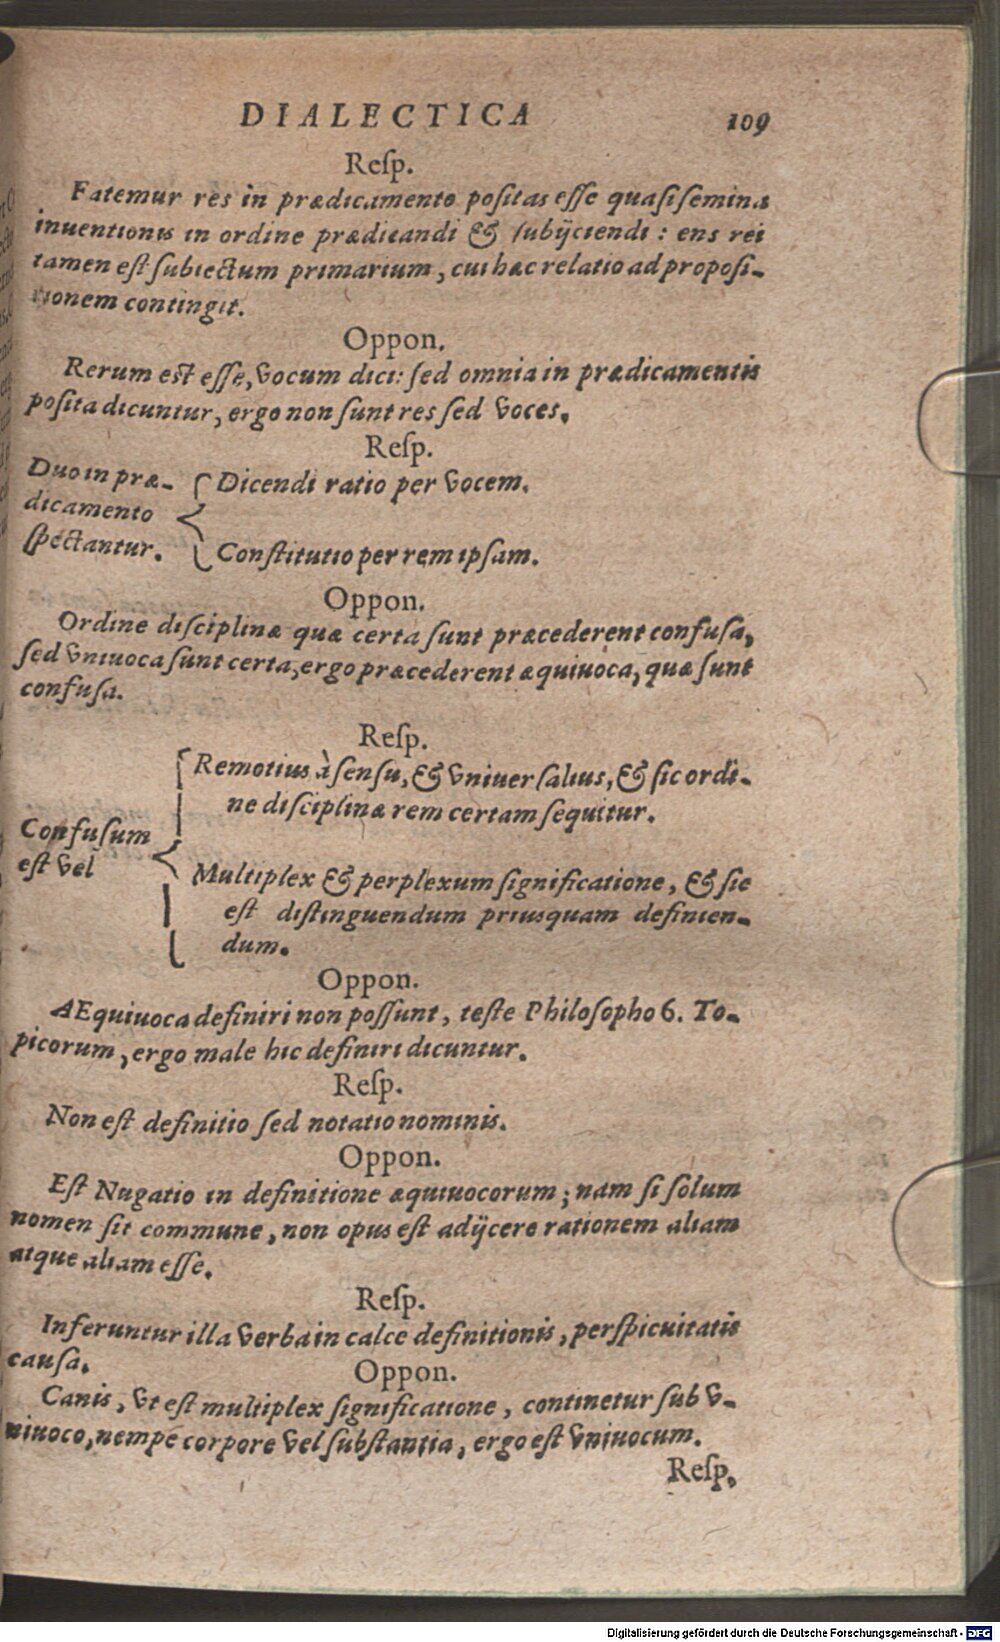 DIALECTICA 109
Reſp.
Fatemur res in prædicamento poſitas eſſe quaſi ſemina
inuentionis in ordine prædicandi & ſubijciendi : ens rei
tamen eſt ſubiectum primarium, cui hæc relatio ad propoſi-
tionem contingit.
Oppon.
Rerum est eſſe, vocum dici: ſed omnia in prædicamentis
poſita dicuntur, ergo non ſunt res ſed voces.
Reſp.
Duo in præ-
dicamento
ſpectantur.
Dicendi ratio per vocem.
Conſtitutio per rem ipſam.
Oppon.
Ordine diſciplinæ quæ certa ſunt præcederent confuſa,
ſed vniuoca ſunt certa, ergo præcederent æquiuoca, quæ ſunt
confuſa.
Reſp.
Confuſum
eſt vel
Remotius à ſenſu, & vniuerſalius, & ſic ordi-
ne diſciplinæ rem certam ſequitur.
Multiplex & perplexum ſignificatione, & ſic
eſt diſtinguendum priusquam definien-
dum.
Oppon.
AEquiuoca definiri non poſſunt, teſte Philoſopho 6. To-
picorum, ergo male hic definiri dicuntur.
Reſp.
Non eſt definitio ſed notatio nominis.
Oppon.
Eſt Nugatio in definitione æquiuocorum ; nam ſi ſolum
nomen ſit commune, non opus eſt adijcere rationem aliam
atque aliam eſſe.
Reſp.
Inferuntur illa verba in calce definitionis, perſpicuitatis
cauſa.
Oppon.
Canis, vt eſt multiplex ſignificatione, continetur ſub v-
niuoco, nempe corpore vel ſubſtantia, ergo eſt vniuocum.
Reſp.
Digitalisierung gefördert durch die Deutsche Forschungsgemeinschaft - DFG